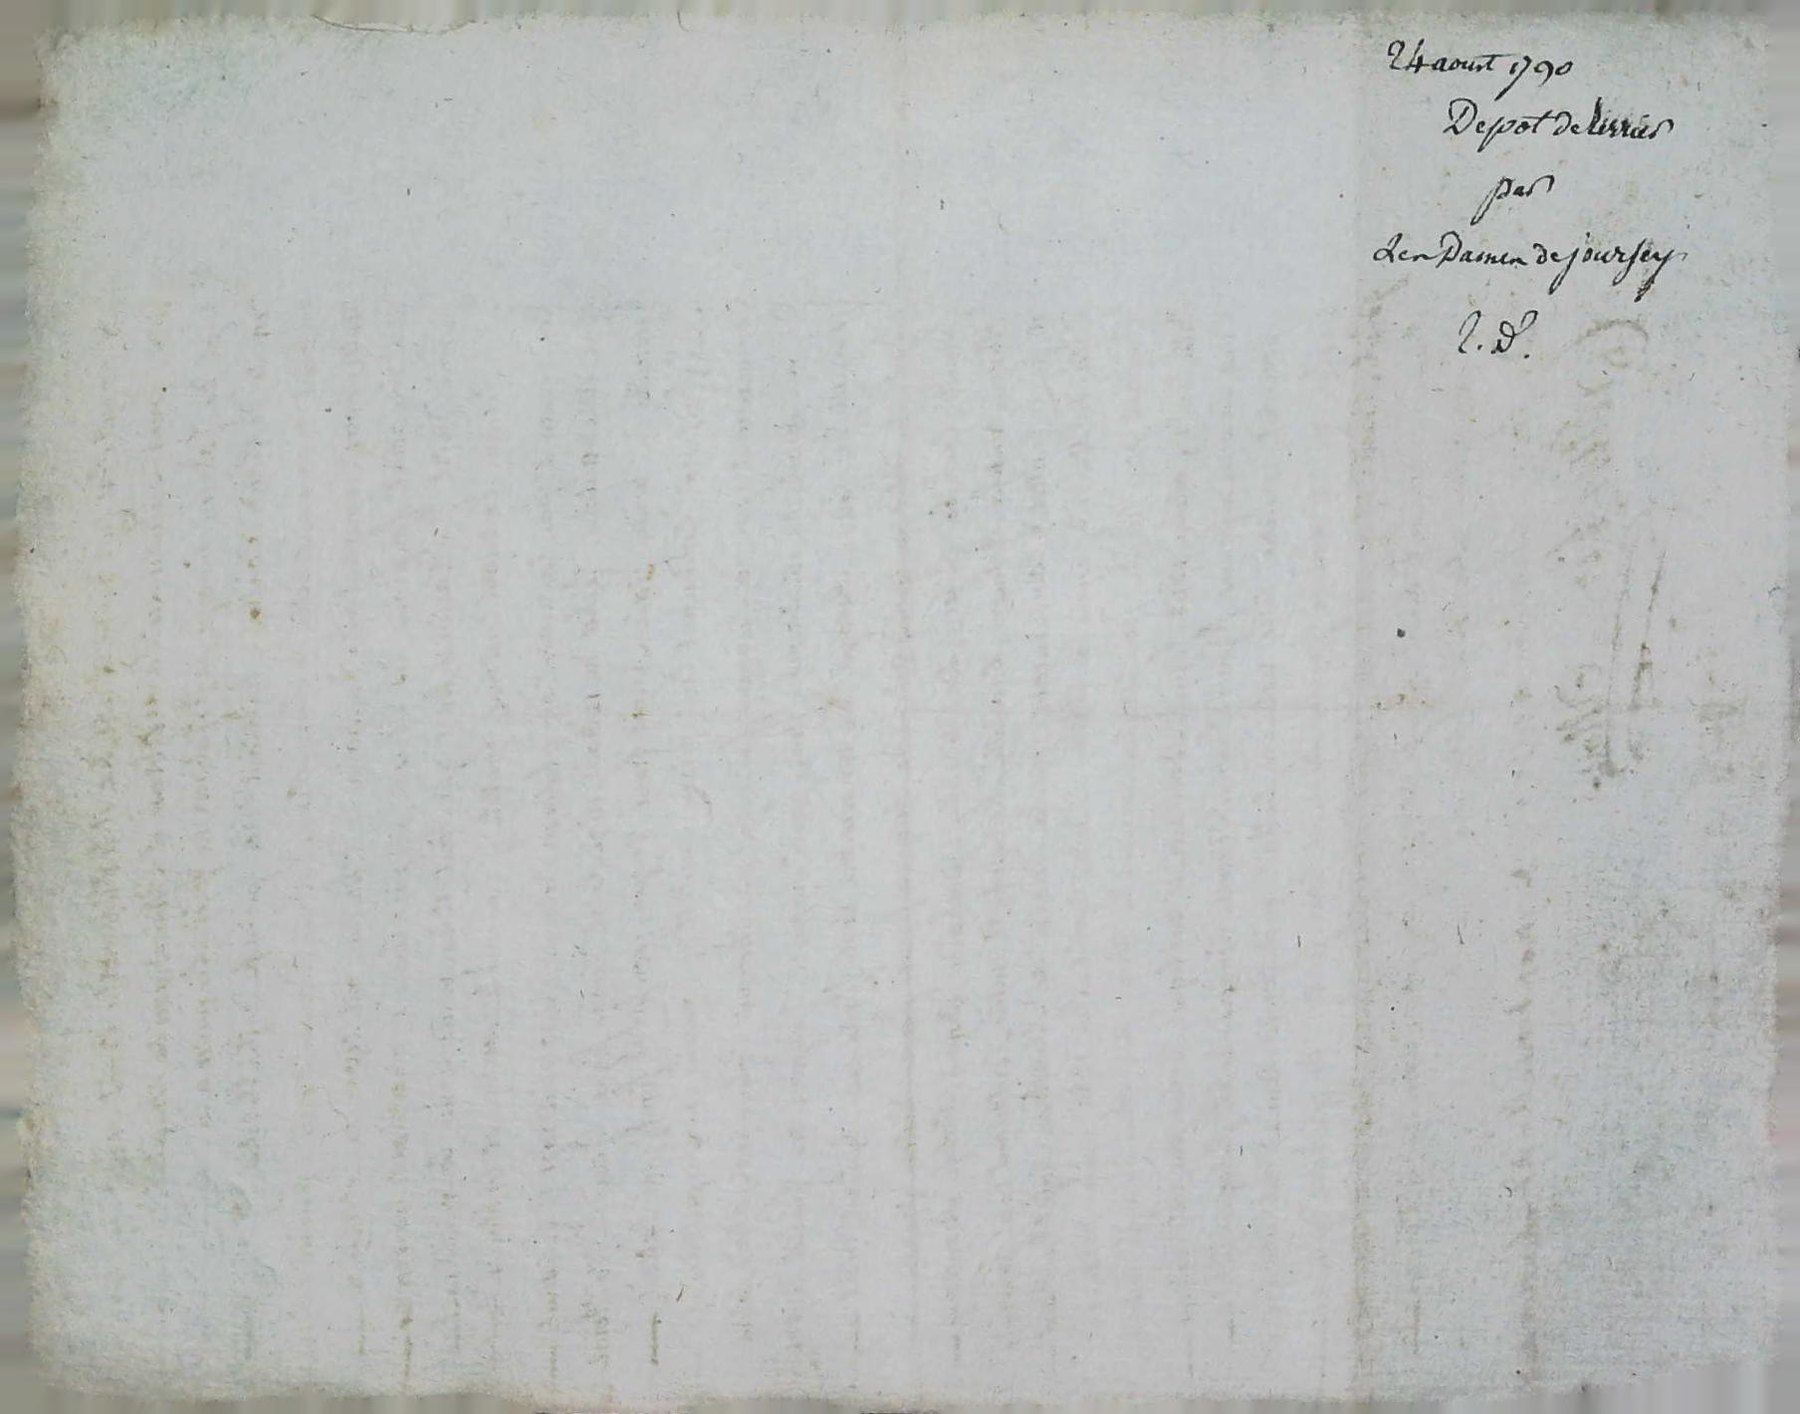 24 aoust 1790
Depot de
par
Les Dames de joursey
2. d.